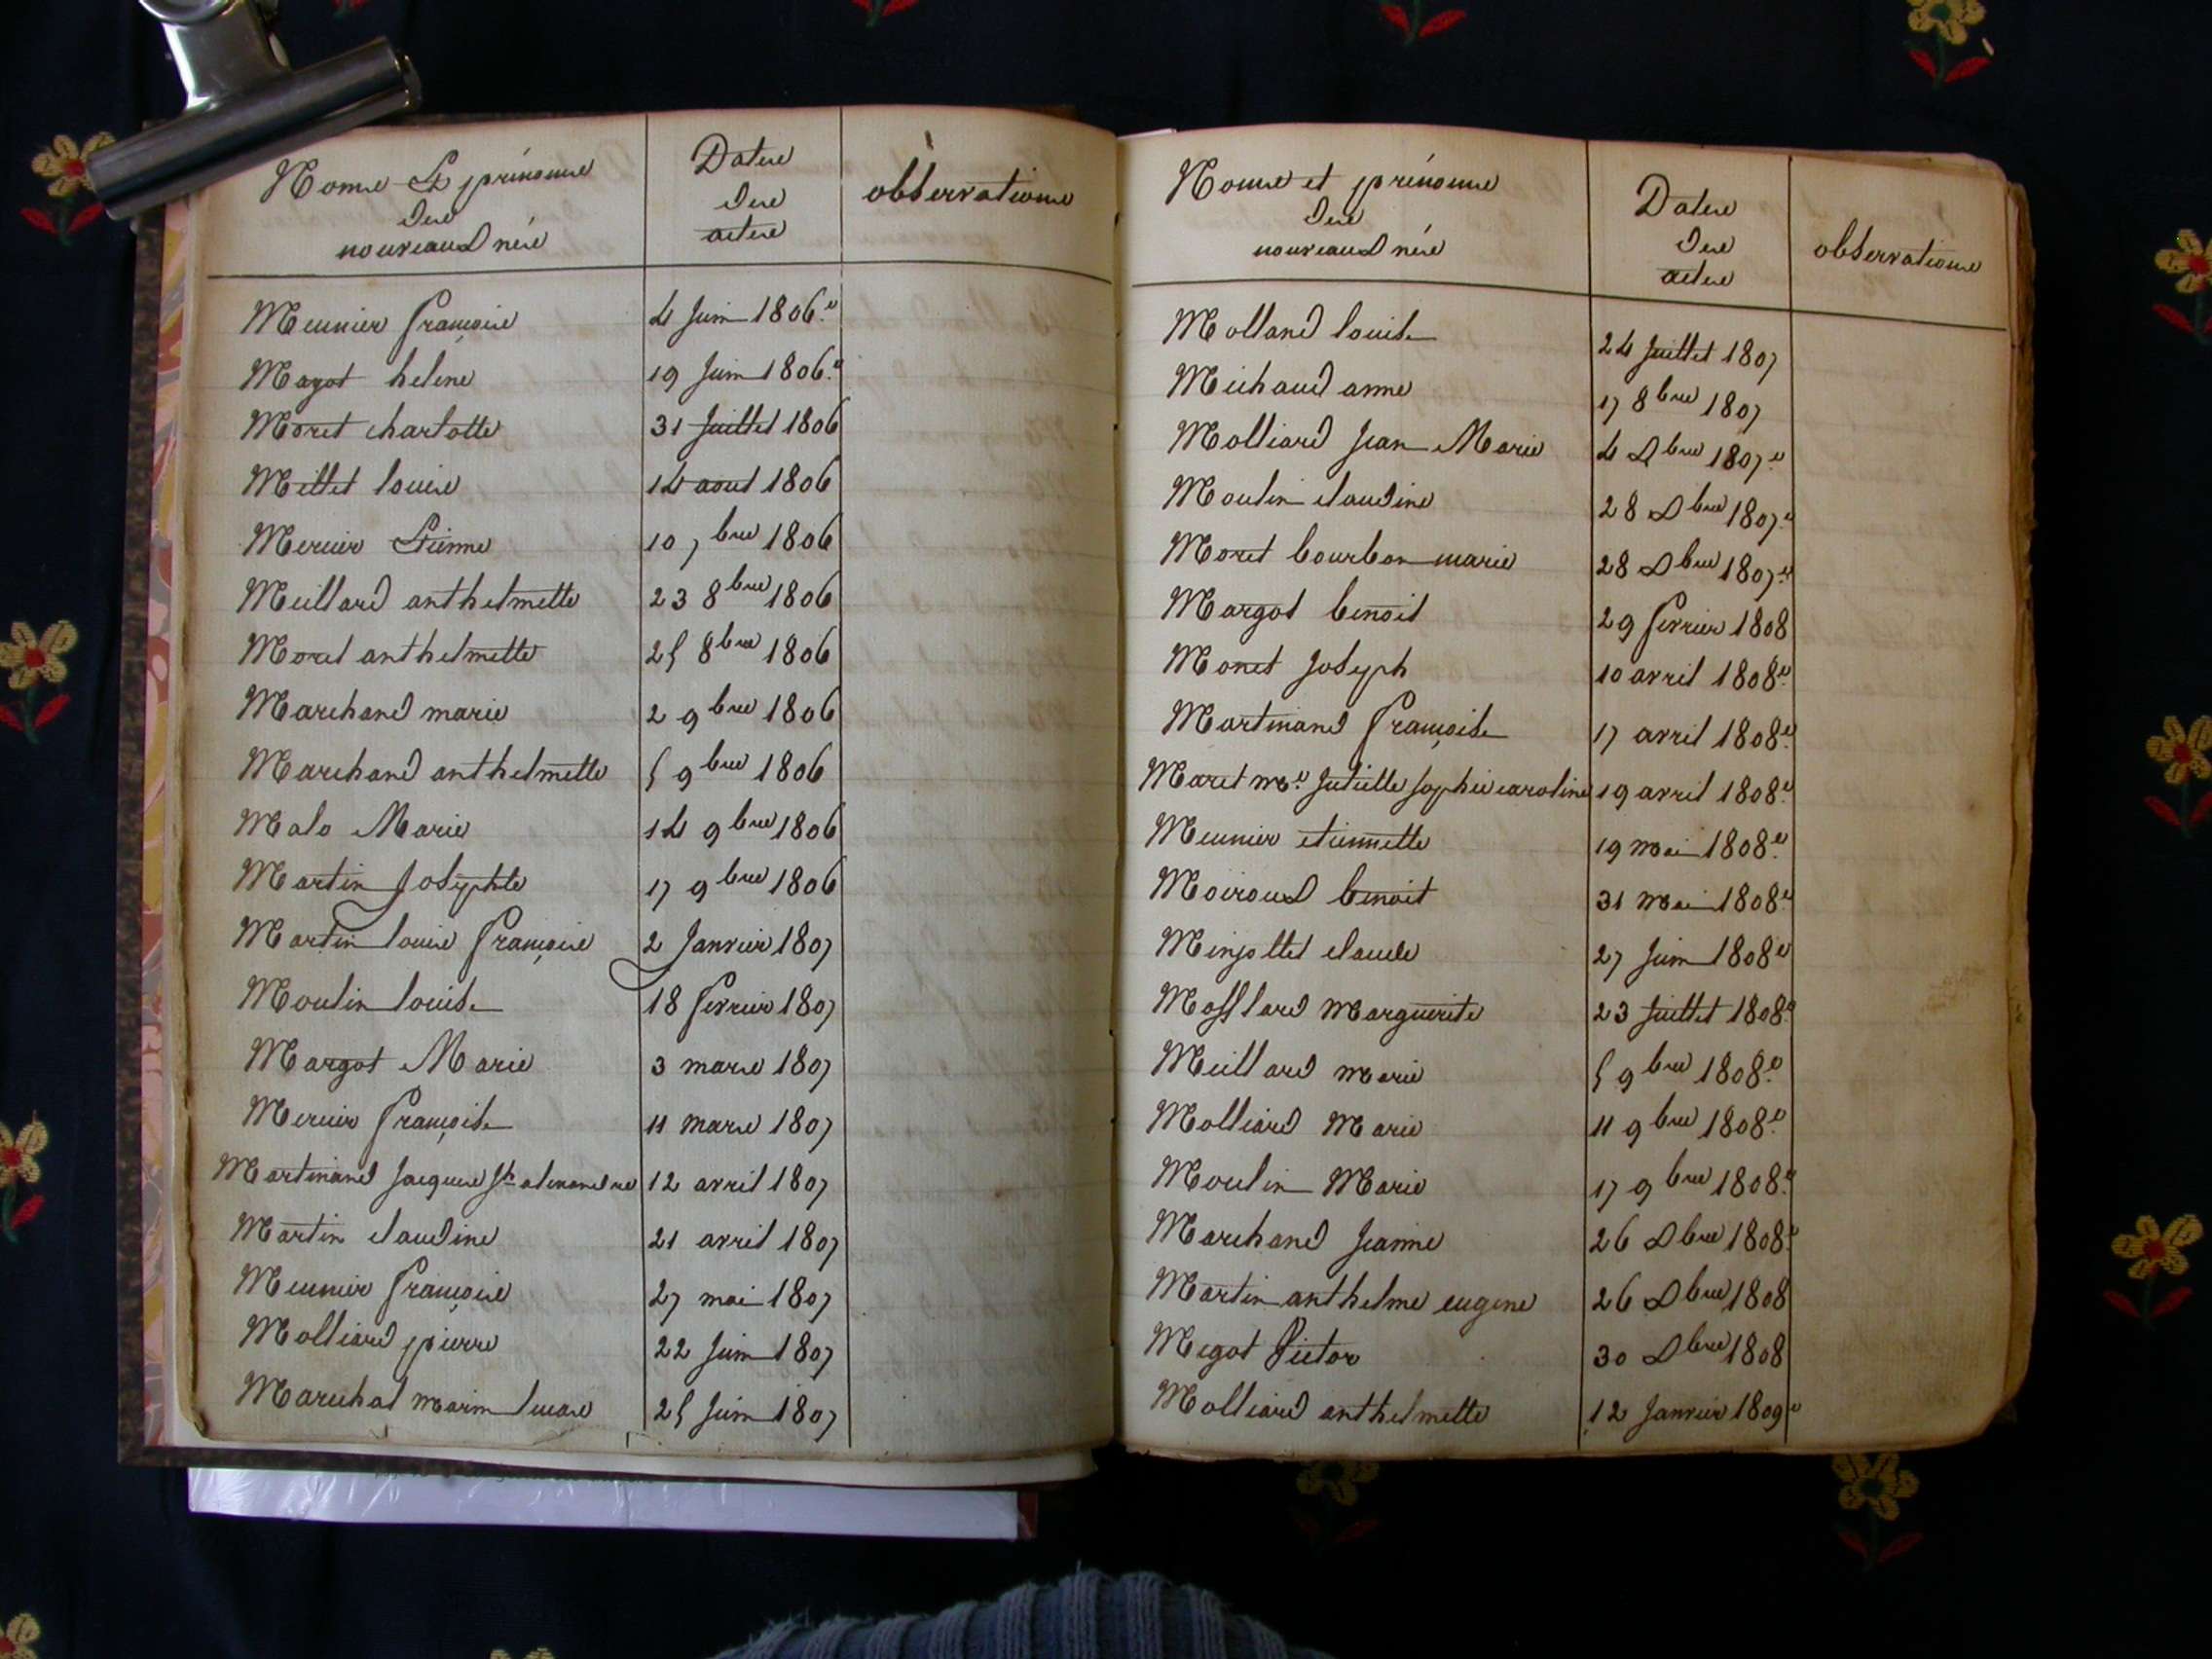 Noms Et prénoms
des
nouveaux nés
Dates
des
actes
observations
Meunier françois 4 Juin 1806.
Magot helene 19 Juin 1806.
Moret charlotte 31 Juillet 1806
Millet louis 14 aout 1806
Mercier Etienne 10 7bre 1806
Meillard anthelmette 23 8bre 1806
Morel anthelmette 25 8bre 1806
Marchand marie 2 9bre 1806
Marchand anthelmette 5 9bre 1806
Malo Marie 14 9bre 1806
Martin Josephte 17 9bre 1806
Martin louis françois 2 Janvier 1807
Moulin louise 18 fevrier 1807
Margot Marie 3 mars 1807
Mercier françoise 11 mars 1807
Martinand Jacques alexandre 12 avril 1807
Martin claudine 21 avril 1807
Meunier françois 27 mai 1807
Molliard pierre 22 Juin 1807
Marechal marin lucas 25 Juin 1807
Noms et prénoms
des
nouveaux nés
Dates
des
actes
observations
Molland louise 24 Juillet 1807
Michaud anne 17 8bre 1807
Molliard Jean Marie 4 Xbre 1807
Moulin claudine 28 Xbre 1807
Moret bourbon marie 28 Xbre 1807
Margot benoit 29 fevrier 1808
Monet Joseph 10 avril 1808
Martinand françoise 17 avril 1808
Maret me Juliette sophie caroline 19 avril 1808
Meunier etiennette 19 mai 1808
Moiroux benoit 31 mai 1808
Minjollet claude 27 Juin 1808
Mofflard Marguerite 23 Juillet 1808
Meillard marie 5 9bre 1808
Molliard Marie 11 9bre 1808
Moulin Marie 17 9bre 1808
Marchand Jeanne 26 Xbre 1808
Martin anthelme eugene 26 Xbre 1808
Megot Victor 30 Xbre 1808
Molliard anthelmette 12 Janvier 1809